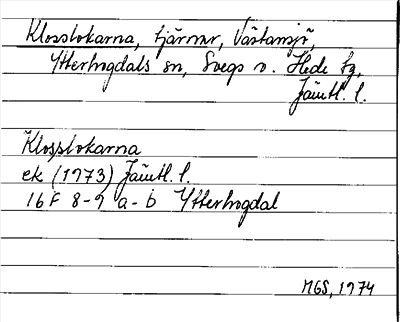 Klosstokarna, tjärnar, Västansjö,
Ytterhogdals sn, Svegs o. Hede tg,
Jämtl. l.
Klosstokarna
ek (1973) Jämtl. l.
16F 8-9 a-b Ytterhogdal
MGS, 1974